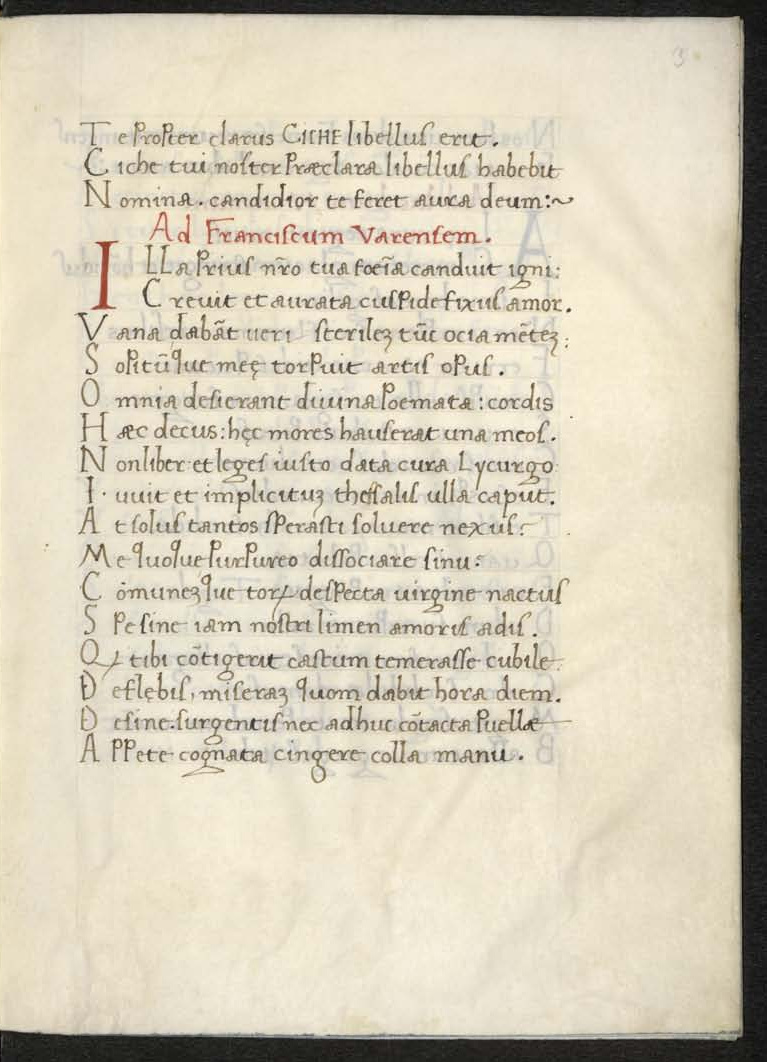 3
Te propter clarus CICHE libellus erit.
Ciche tui noster præclara libellus habebit
Nomina. candidior te feret aura deum:~
Ad Franciscum Varensem.
ILLa prius nr̃o tua foem̃ia canduit igni:
Creuit et aurata cuspide fixus amor.
Vana dabãt ueri sterileꝫ tũc ocia mẽteꝫ:
Sopitũque meę torpuit artis opus.
Omnia desierant diuina poemata: cordis
Hæc decus: hęc mores hauserat una meos.
Non liber et leges iusto data cura Lycurgo
I.uuit et implicituꝫ thessalis ulla caput.
At solus tantos sperasti soluere nexus:
Me quoque purpureo dissociare sinu:
Cõmuneꝫque torꝝ despecta uirgine nactus
Spe sine iam nostri limen amoris adis.
tibi cõtigerit castum temerasse cubile.
Deflębis, miseraꝫ quom dabit hora diem.
Desine. surgentis nec adhuc cõtacta puellæ
Appete cognata cingere colla manu.